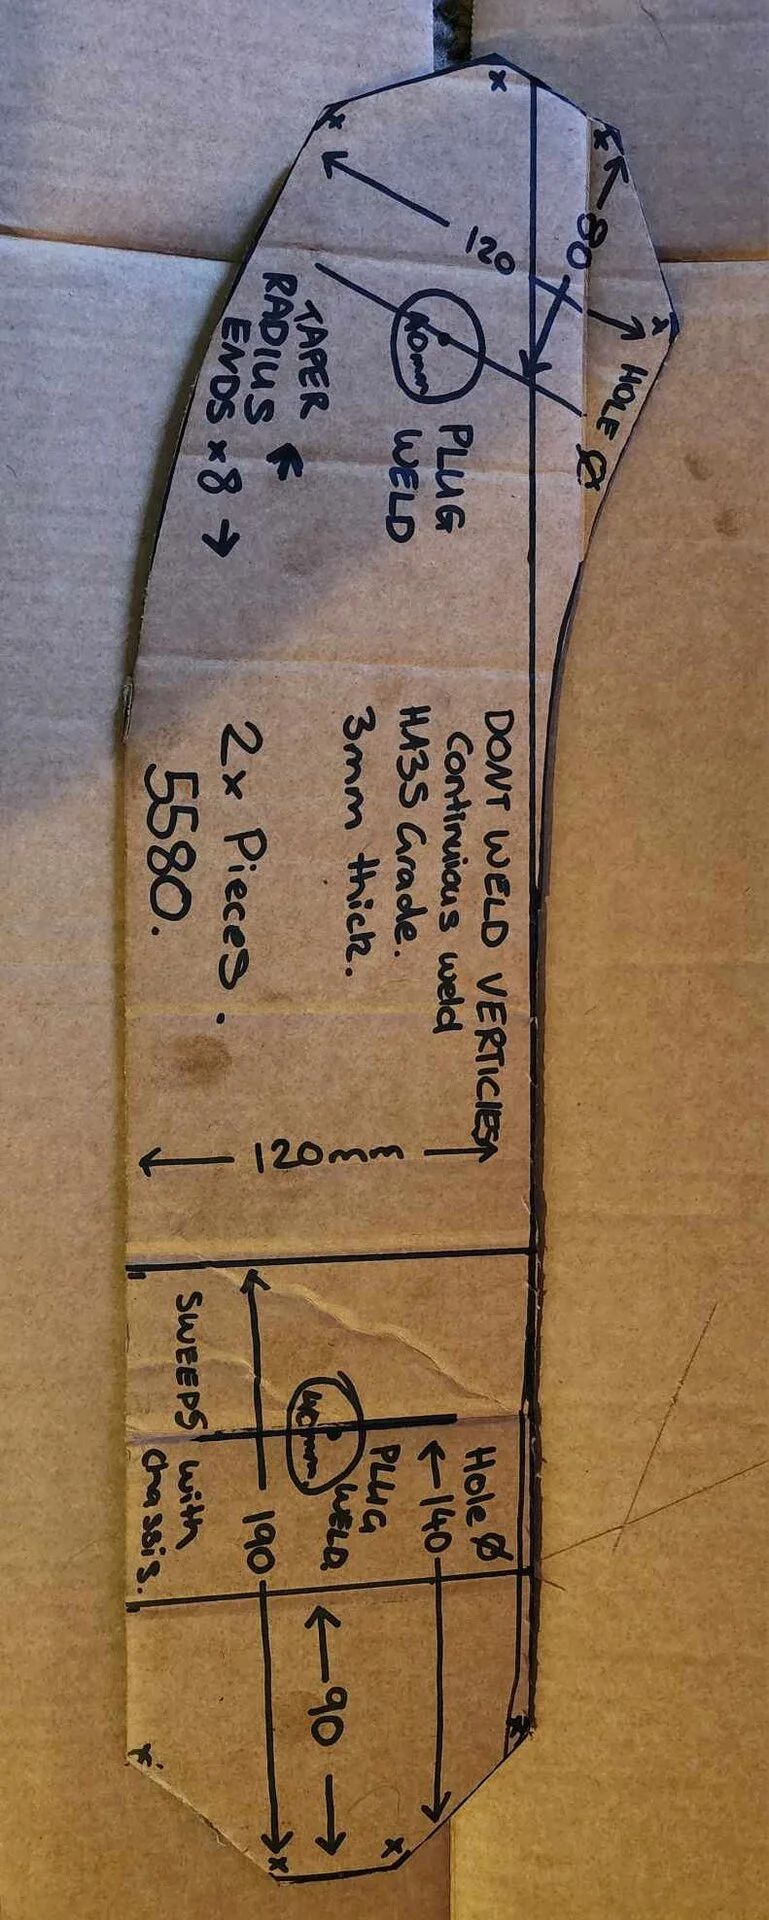 80
120
HOLE ⌀
40mm
PLUG
WELD
TAPER
RADIUS
ENDS x8
DONT WELD VERTICIES
Continuious weld
HA3S Grade.
3mm thick.
2x Pieces.
5580.
120mm
Hole ⌀
140
40mm.
PLUG
WELD.
190
SWEEPS with
Chassis.
90